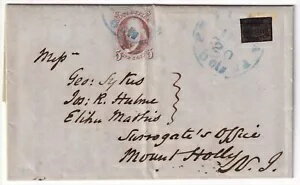 Mess
Geo: Sykes
Jos: R. Hulme
Elihu Mathis
Surrogate's Office
Mount Holly
N. J.
5 5
20